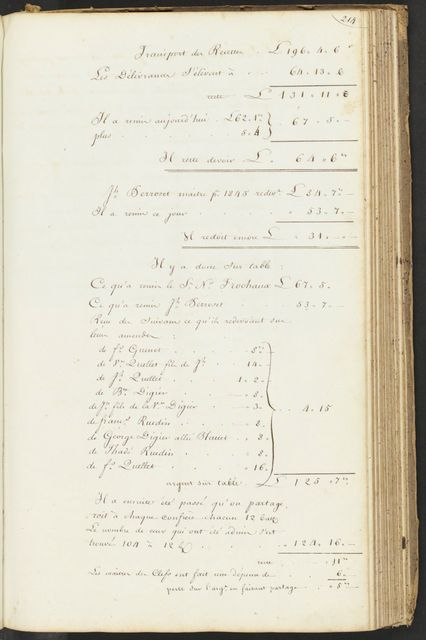 214
Transport des Recettes . £ 196 . 4 . 6
Les Délivrances s'élèvent à . . 64 . 13 . 6
reste £ 131 . 11 . 6
Il a remis aujourd'hui . £ 62. 1.
plus . . . . . 5. 4 } 67 . 5 . —
Il reste devoir £ 64 . 6
Jh. Perroset maitre pr. 1845 redev. £ 84 . 7 . —
Il a remis ce jour . . . 53 . 7 . —
Il redoit encore £ 31 . — —
Il y a donc sur table :
Ce qu'a remis le Sr. Ns. Frochaux £ 67 . 5 .
Ce qu'a remis Jh. Perroset . . 53 . 7 . —
Reçu des suivans ce qu'ils redevoient sur
leurs amendes :
de fs. . . 8
de Quellet fils de Jh. . 14 . —
de Jh. Quellet . . 1 . 2 . —
de Digier . . . 8 .
de fils de la Digier . . 3 .
de franç. Ruedin . . 8 .
de George Digier allié . 8 .
de Thadé Ruedin . . 8 .
de fs. Quellet . . 16 .
} 4 . 15
argent sur table £ 125 . 7
Il a ensuite été passé qu'on partage
roit à chaque confrère chacun 12 batz
Le nombre de ceux qui ont été admis s'est
trouvé 104 à 12 . . 124 . 16 . —
reste . . 11
Les maitres des Clefs ont fait une dépense de . . 6 . —
reste sur l'argt. en faisant partage . . 5